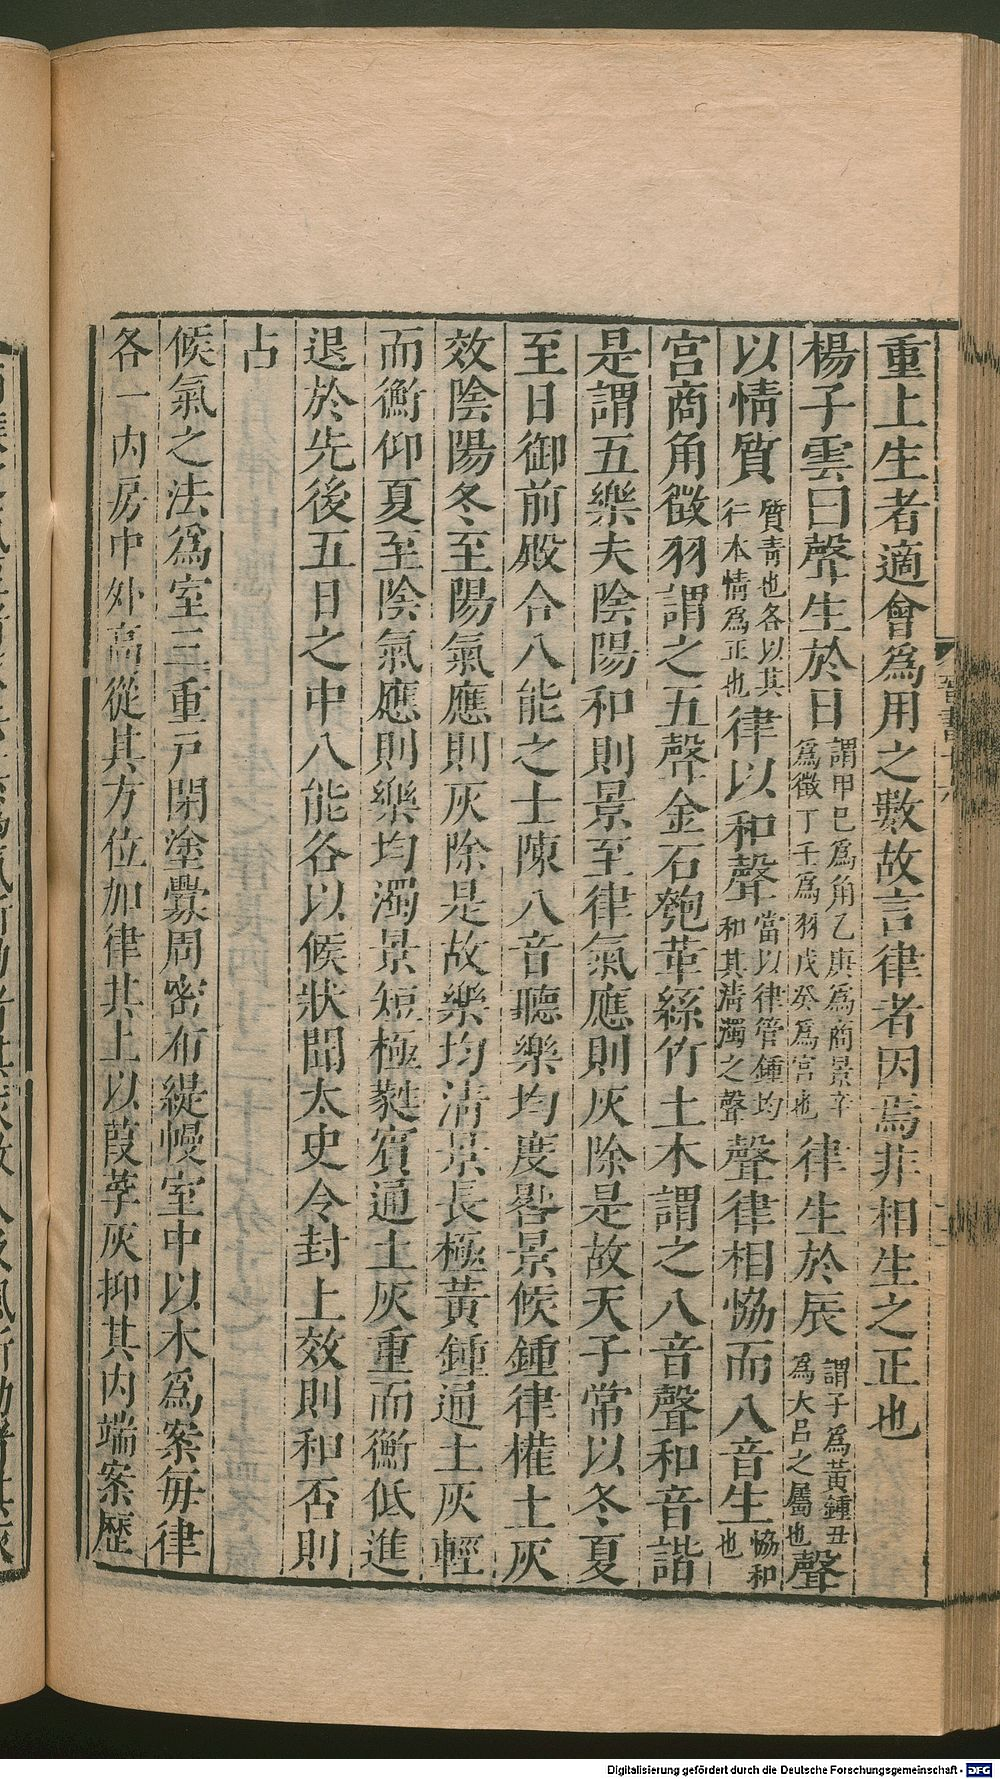 重上生者適會爲用之數故言律者因焉非相生之正也
楊子雲曰聲生於日謂甲己爲角乙庚爲商景辛爲徵丁壬爲羽戊癸爲宮也律生於辰謂子爲黃鍾丑爲大呂之屬也聲
以情質質青也各以其行本情爲正也律以和聲當以律管鍾均和其淸濁之聲聲律相恊而八音生恊和也
宮商角徵羽謂之五聲金石匏革絲竹土木謂之八音聲和音諧
是謂五樂夫陰陽和則景至律氣應則灰除是故天子常以冬夏
至日御前殿合八能之士陳八音聽樂均度晷景候鍾律權土灰
效陰陽冬至陽氣應則灰除是故樂均淸景長極黃鍾通土灰輕
而衡仰夏至陰氣應則樂均濁景短極蕤賓通土灰重而衡低進
退於先後五日之中八能各以候狀聞太史令封上效則和否則
占
候氣之法爲室三重戶閉塗釁周密布緹幔室中以木爲案每律
各一內庳中外高從其方位加律其上以葭莩灰抑其內端案歷
晉書十六
Digitalisierung gefördert durch die Deutsche Forschungsgemeinschaft - DFG